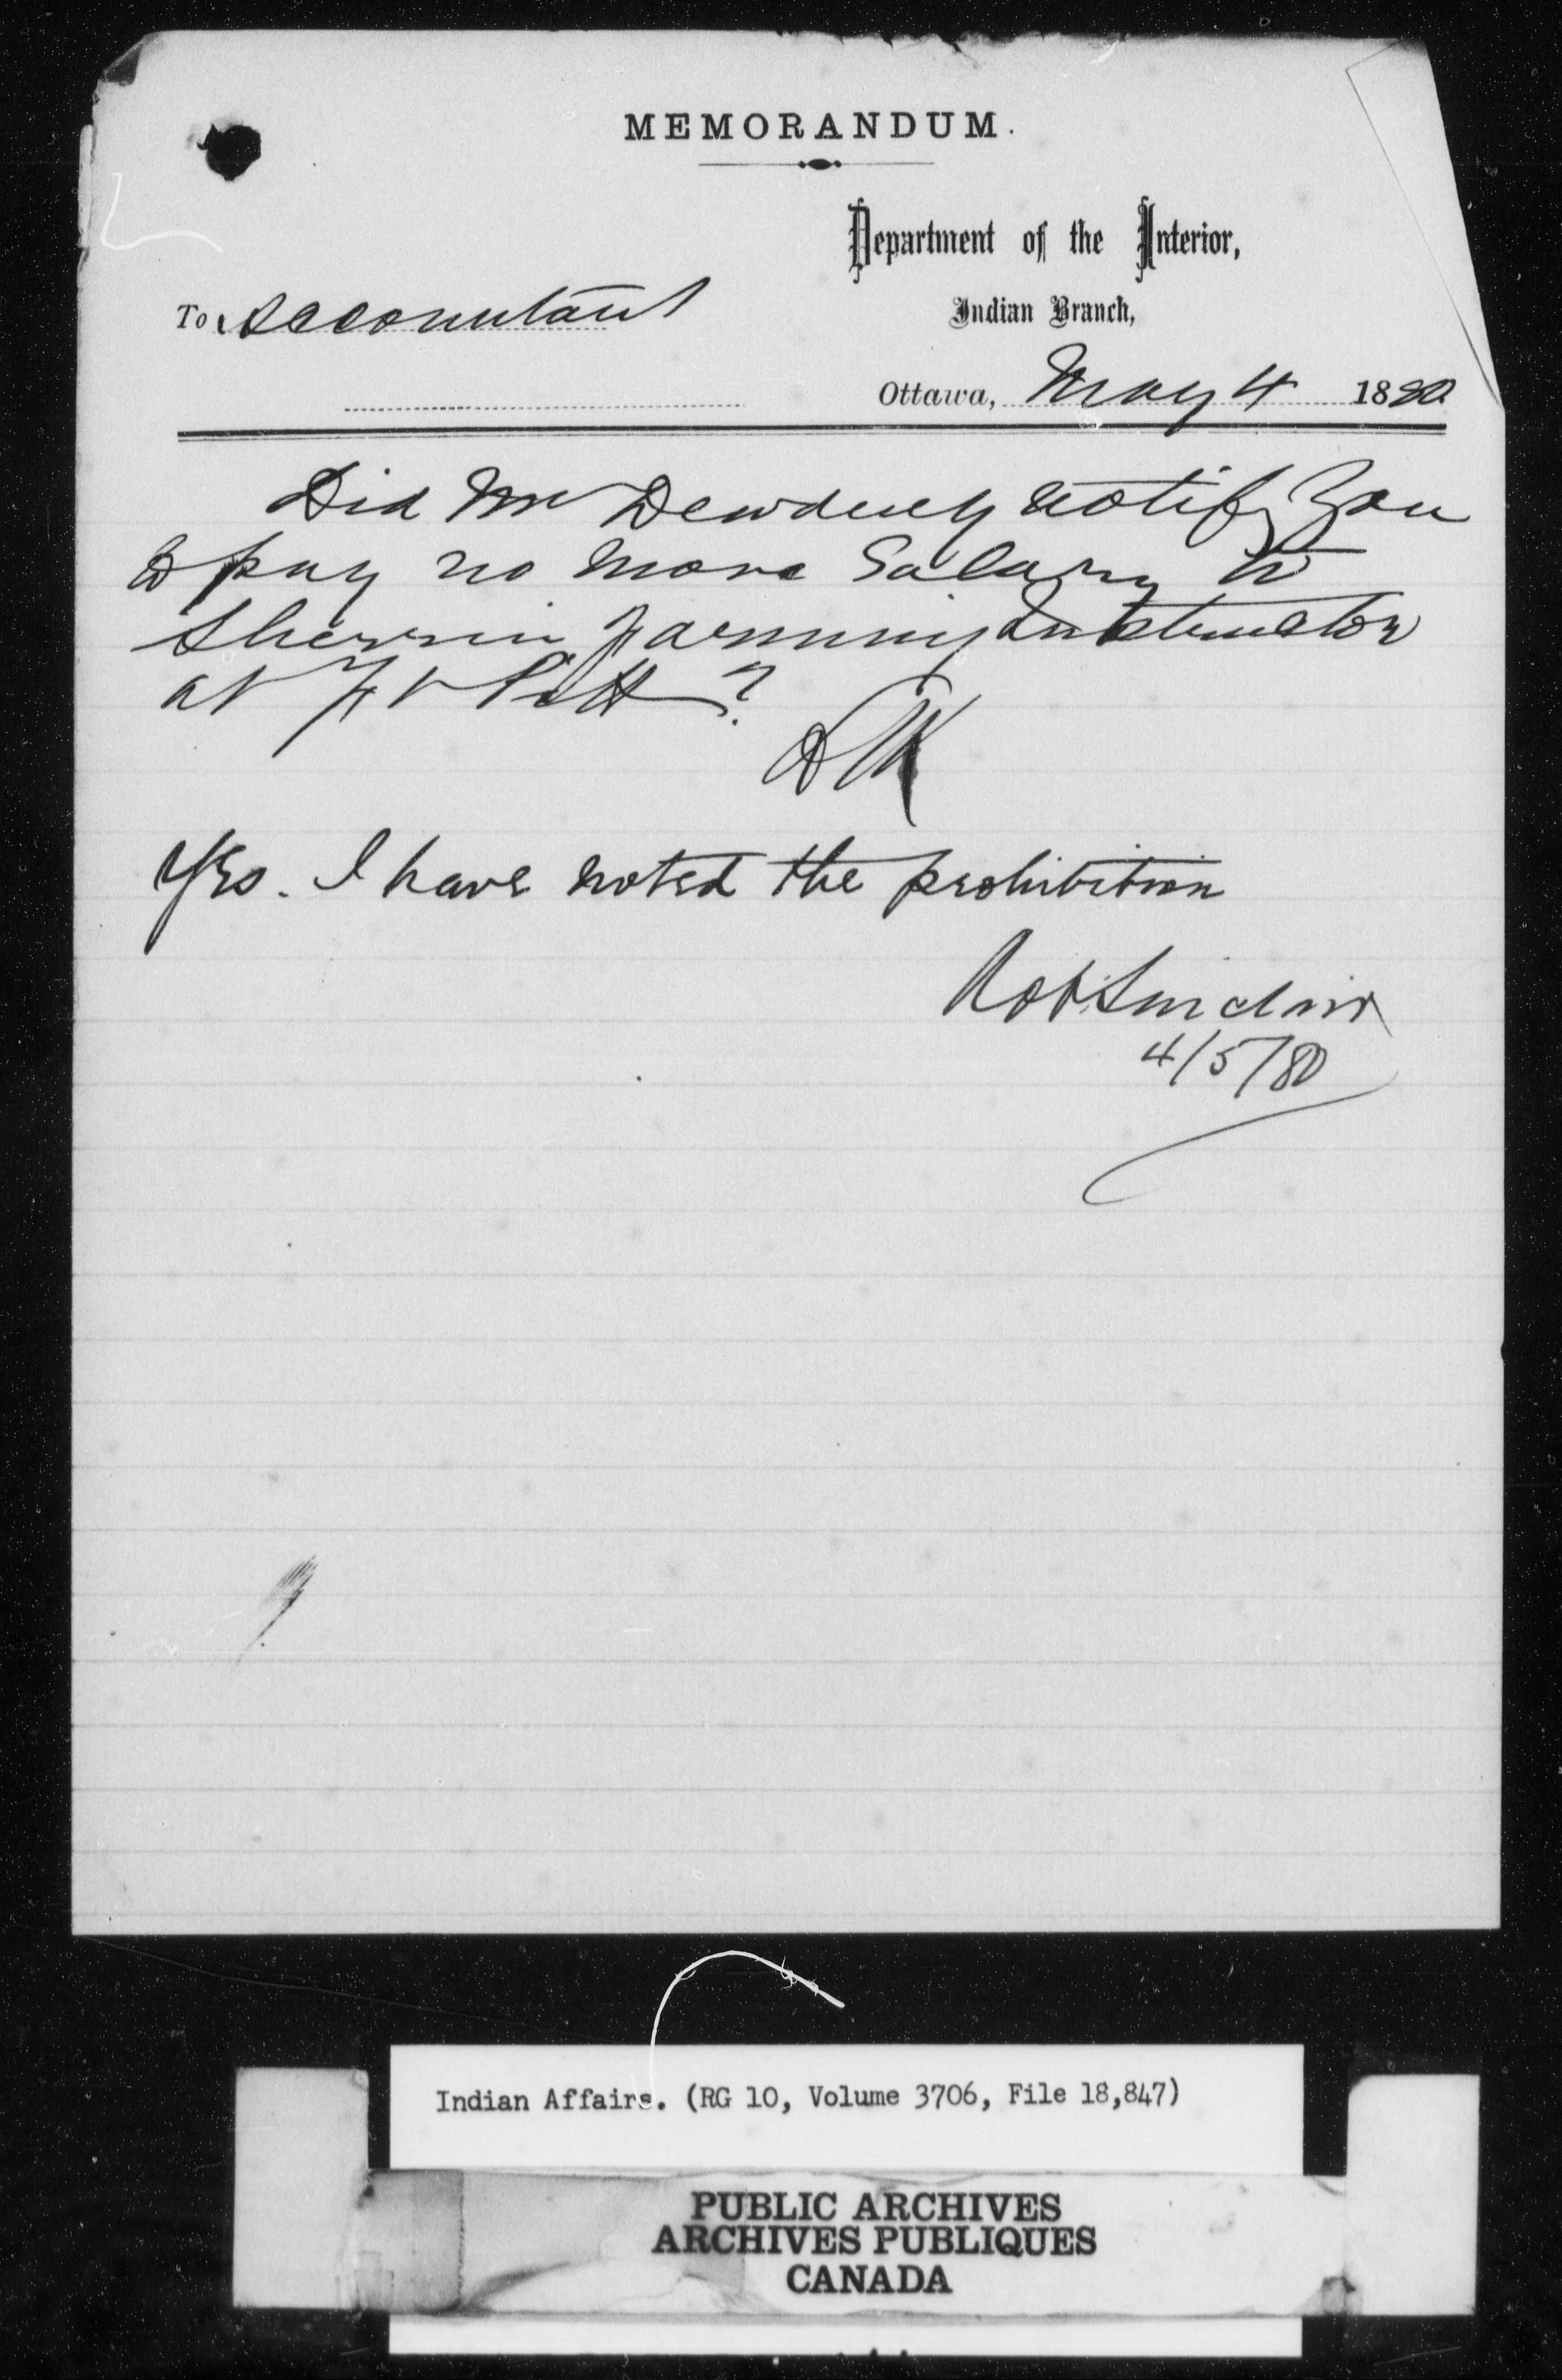 MEMORANDUM.
Department of the Interior,
Indian Branch,
To Accountant
Ottawa, May 4 1880
Did Mr Dewdney notify you
to pay no more Salary to
Sherrin Farming Instructor
at Ft Pitt?
Yes. I have noted the prohibition
Robt Sinclair
4/5/80
Indian Affairs. (RG 10, Volume 3706, File 18,847)
PUBLIC ARCHIVES
ARCHIVES PUBLIQUES
CANADA